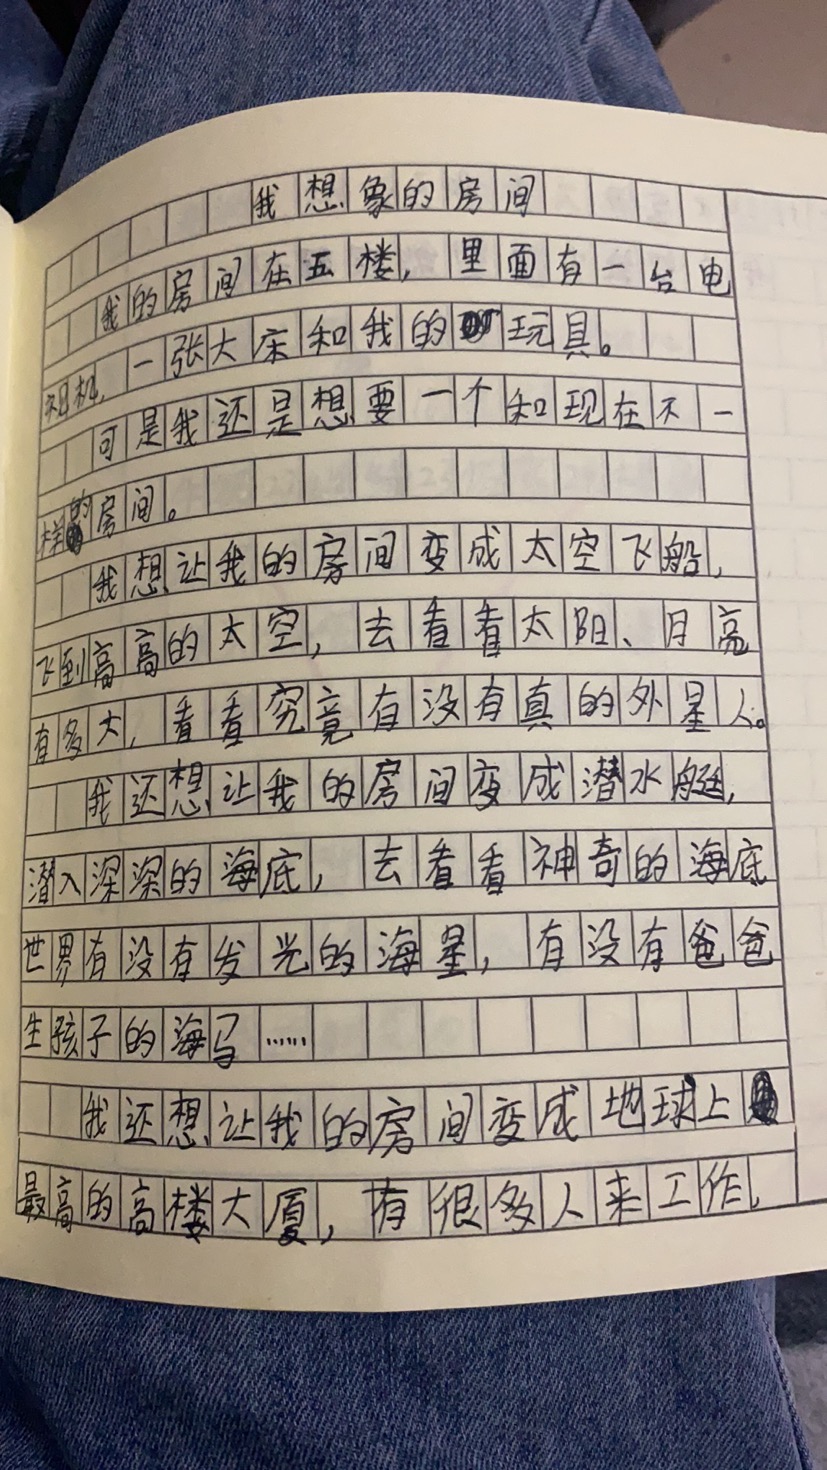 我想象的房间
我的房间在五楼，里面有一台电
视机，一张大床和我的玩具。
可是我还是想要一个和现在不一
样的房间。
我想让我的房间变成太空飞船，
飞到高高的太空，去看看太阳、月亮
有多大，看看究竟有没有真的外星人。
我还想让我的房间变成潜水艇，
潜入深深的海底，去看看神奇的海底
世界有没有发光的海星，有没有爸爸
生孩子的海马……
我还想让我的房间变成地球上
最高的高楼大厦，有很多人来工作，